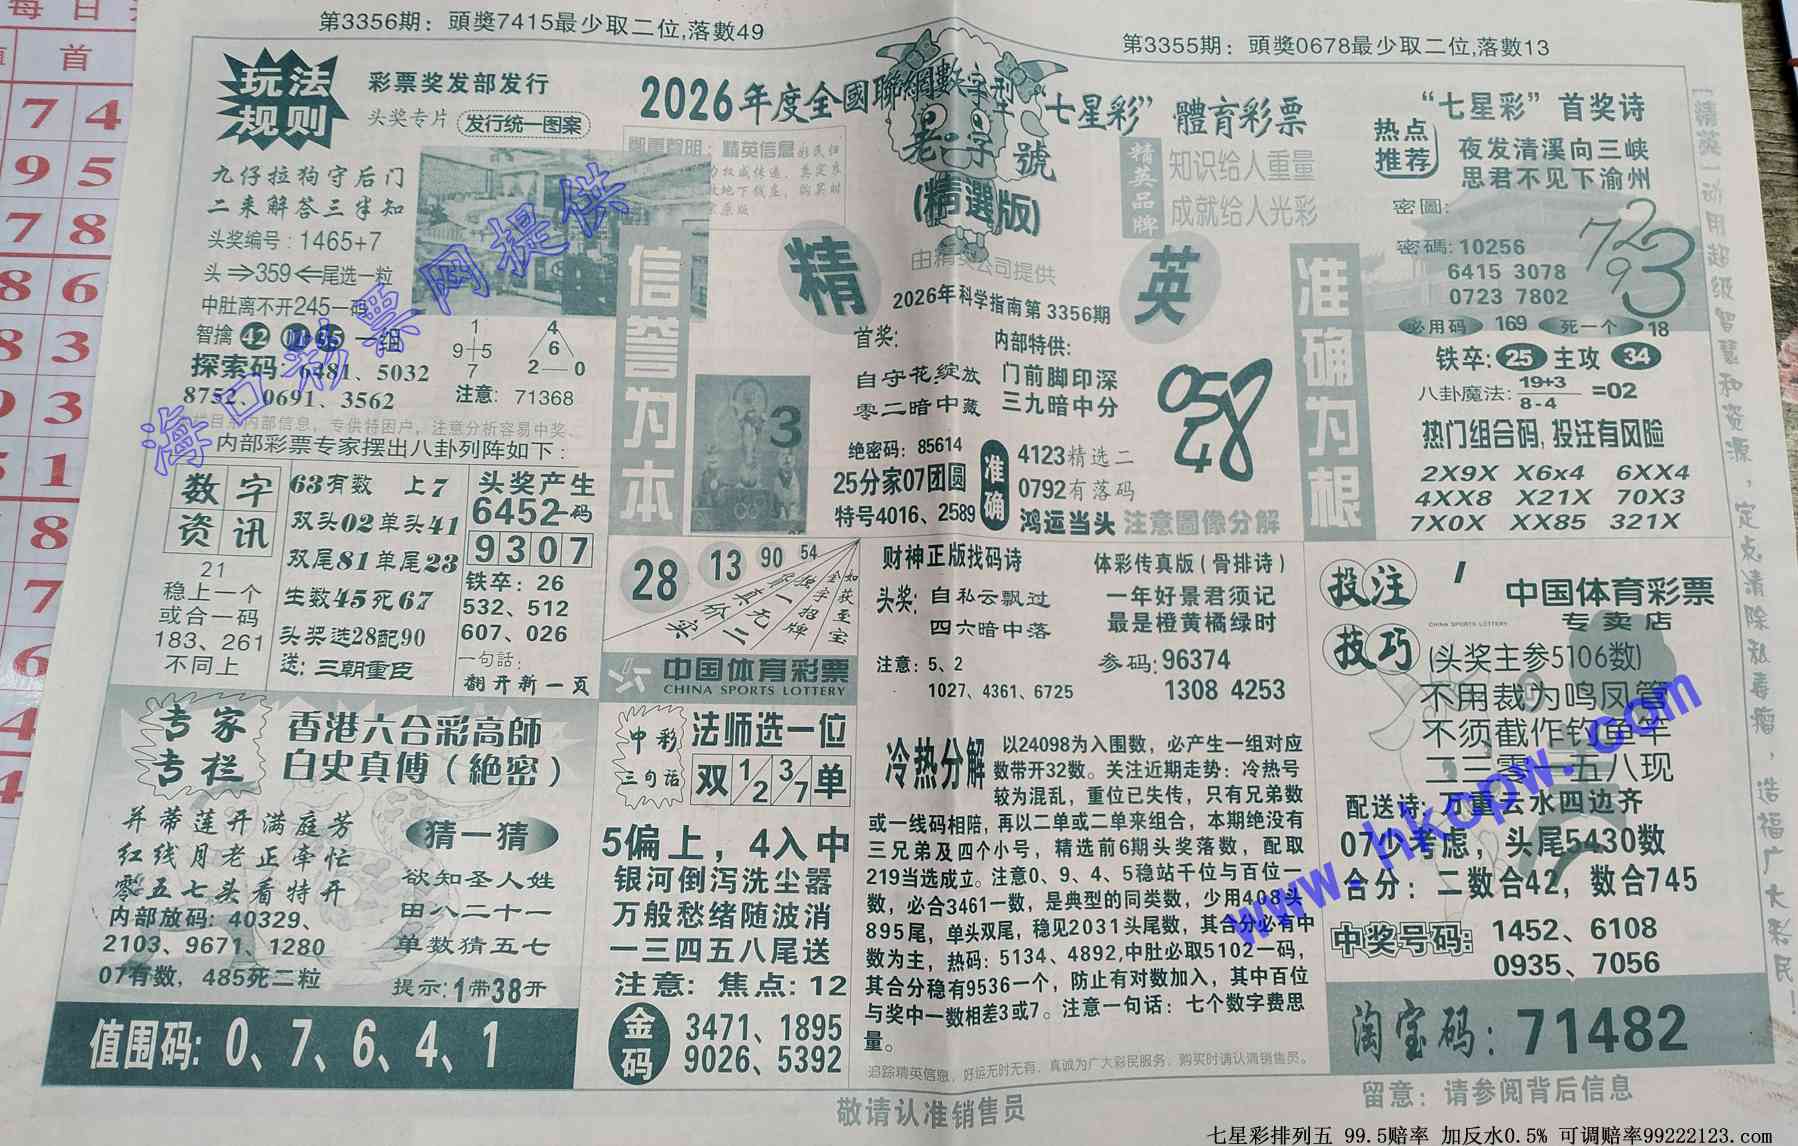 第3356期：頭獎7415最少取二位,落數49
第3355期：頭獎0678最少取二位,落數13
玩法
规则
彩票奖发部发行
头奖专片
发行统一图案
2026年度全國聯網數字型“七星彩”體育彩票
老二字號
(精選版)
由精英公司提供
2026年科学指南第3356期
精英品牌
知识给人重量
成就给人光彩
“七星彩”首奖诗
热点
推荐
夜发清溪向三峡
思君不见下渝州
密圖:
密碼:10256
6415 3078
0723 7802
必用码 169 死一个 18
铁卒: 25 主攻 34
八卦魔法: 19+3
8-4
=02
热门组合码,投注有风险
2X9X X6x4 6XX4
4XX8 X21X 70X3
7X0X XX85 321X
九仔拉狗守后门
二来解答三半知
头奖编号：1465+7
头⇒359⇐尾选一粒
中肚离不开245一码
智擒 42 01 35 一组
探索码: 6481、5032
8752、0691、3562
1
9 5
7
4
6
2 0
注意: 71368
内部彩票专家摆出八卦列阵如下：
信誉为本
精
英
准确为根
首奖:
自守花绽放
零二暗中藏
内部特供:
门前脚印深
三九暗中分
绝密码: 85614
25分家07团圆
特号4016、2589
准确
4123精选二
0792有落码
鸿运当头 注意圖像分解
058
48
3
数字
资讯
21
稳上一个
或合一码
183、261
不同上
63有数 上7
双头02单头41
双尾81单尾23
生数45死67
头奖选28配90
送: 三朝重臣
头奖产生
6452一码
9307
铁卒: 26
532、512
607、026
一句話:
翻开新一页
28 13 90 54
中国体育彩票
CHINA SPORTS LOTTERY
财神正版找码诗
头奖: 自私云飘过
四六暗中落
注意: 5、2
1027、4361、6725
体彩传真版(骨排诗)
一年好景君须记
最是橙黄橘绿时
参码: 96374
1308 4253
投注
技巧
中国体育彩票
CHINA SPORTS LOTTERY
专卖店
(头奖主参5106数)
不用裁为鸣凤管
不须截作钓鱼竿
二三零一五八现
配送诗: 万重云水四边齐
07少考虑，头尾5430数
合分: 二数合42，数合745
中奖号码: 1452、6108
0935、7056
淘宝码: 71482
专家
专栏
香港六合彩高師
白史真傅(絶密)
并蒂莲开满庭芳
红线月老正牵忙
零五七头看特开
内部放码: 40329、
2103、9671、1280
07有数，485死二粒
猜一猜
欲知圣人姓
田八二十一
单数猜五七
提示:1带38开
值围码: 0、7、6、4、1
中彩
三句话
法师选一位
双 1/2 3/7 单
5偏上，4入中
银河倒泻洗尘嚣
万般愁绪随波消
一三四五八尾送
注意: 焦点: 12
金码
3471、1895
9026、5392
冷热分解
以24098为入围数，必产生一组对应
数带开32数。关注近期走势：冷热号
较为混乱，重位已失传，只有兄弟数
或一线码相陪，再以二单或二单来组合，本期绝没有
三兄弟及四个小号，精选前6期头奖落数，配取
219当选成立。注意0、9、4、5稳站千位与百位一
数，必合3461一数，是典型的同类数，少用408头
895尾，单头双尾，稳见2031头尾数，其合分必有中
数为主，热码：5134、4892,中肚必取5102一码，
其合分稳有9536一个，防止有对数加入，其中百位
与奖中一数相差3或7。注意一句话：七个数字费思
量。
追踪精英信息，好运无时无有，真诚为广大彩民服务，购买时请认清销售员。
敬请认准销售员
留意: 请参阅背后信息
海口彩票网提供
www.hkopw.com
七星彩排列五 99.5赔率 加反水0.5% 可调赔率99222123.com